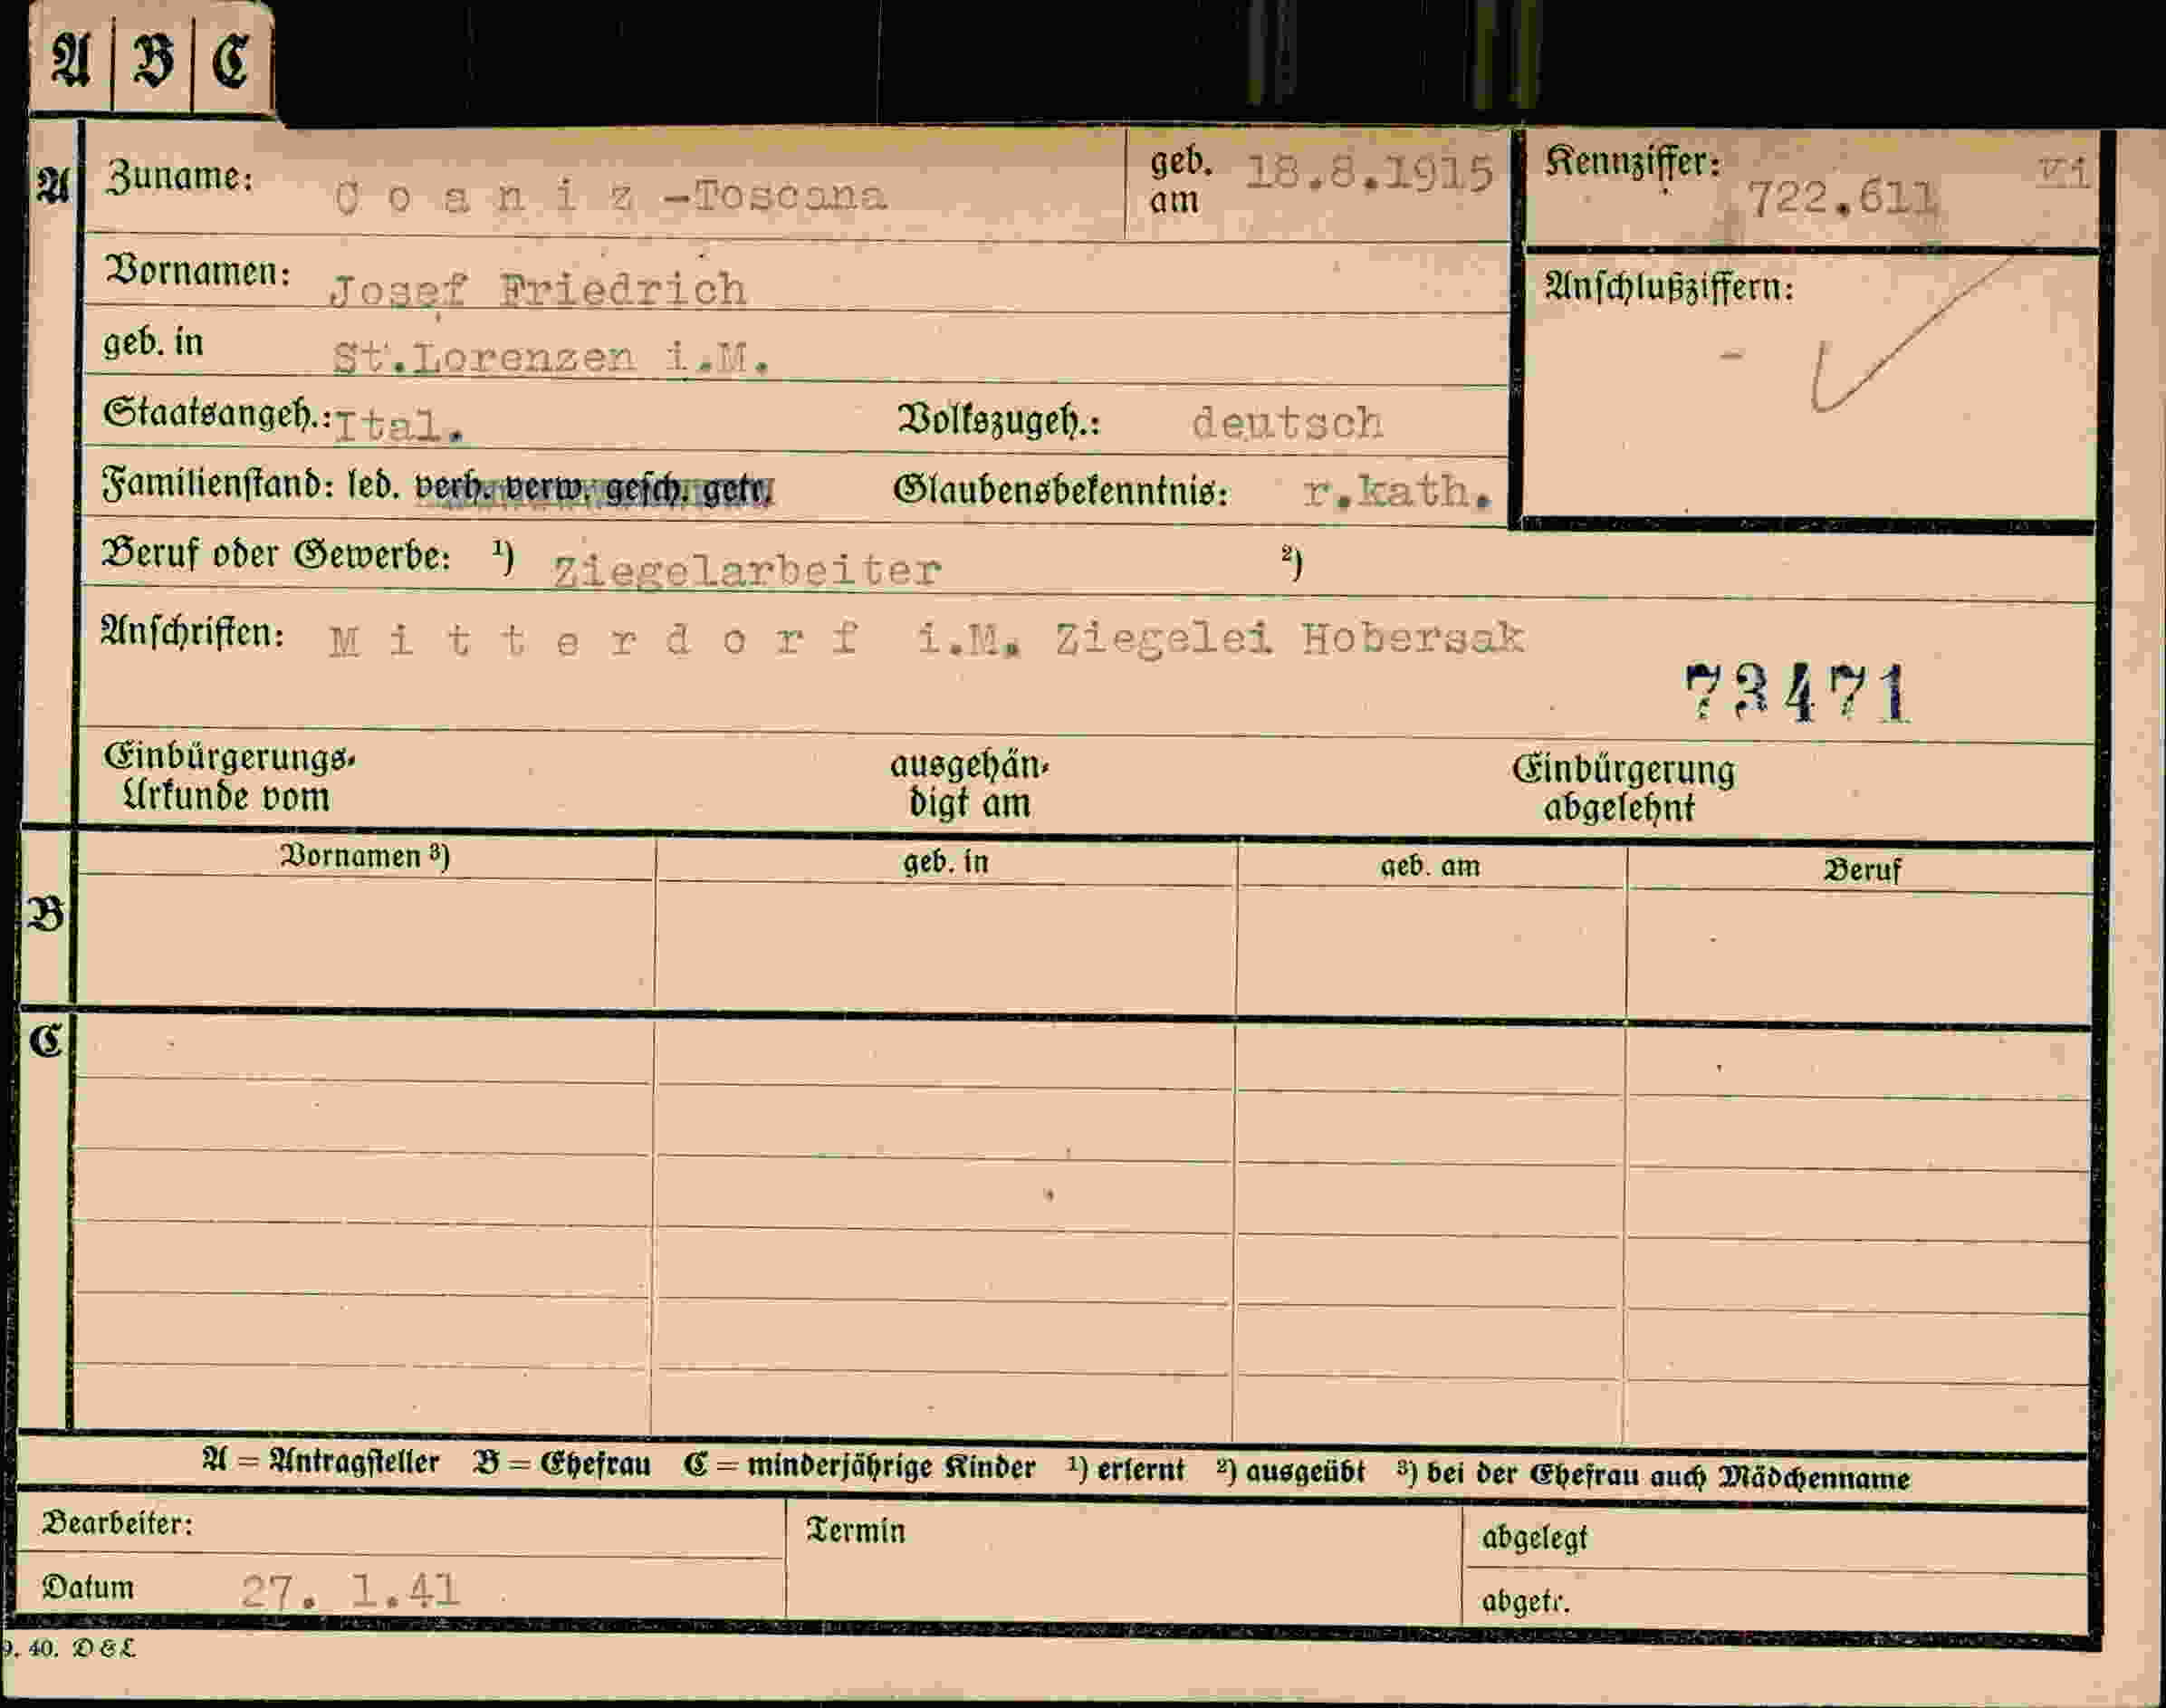 A B C
A Zuname: C o a n i z -Toscana geb. am 18.8.1915 Kennziffer: 722.611 vi
Vornamen: Josef Friedrich Anschlußziffern: -
geb. in St.Lorenzen i.M.
Staatsangeh.: Ital. Volkszugeh.: deutsch
Familienstand: led. verh. verw. gesch. getr. Glaubensbekenntnis: r.kath.
Beruf oder Gewerbe: ¹) Ziegelarbeiter ²)
Anschriften: M i t t e r d o r f i.M. Ziegelei Hobersak
73471
Einbürgerungs- ausgehän- Einbürgerung
Urkunde vom digt am abgelehnt
Vornamen ³) geb. in geb. am Beruf
B
C
A = Antragsteller B = Ehefrau C = minderjährige Kinder ¹) erlernt ²) ausgeübt ³) bei der Ehefrau auch Mädchenname
Bearbeiter: Termin abgelegt
Datum 27. 1.41 abgetr.
9. 40. D & L